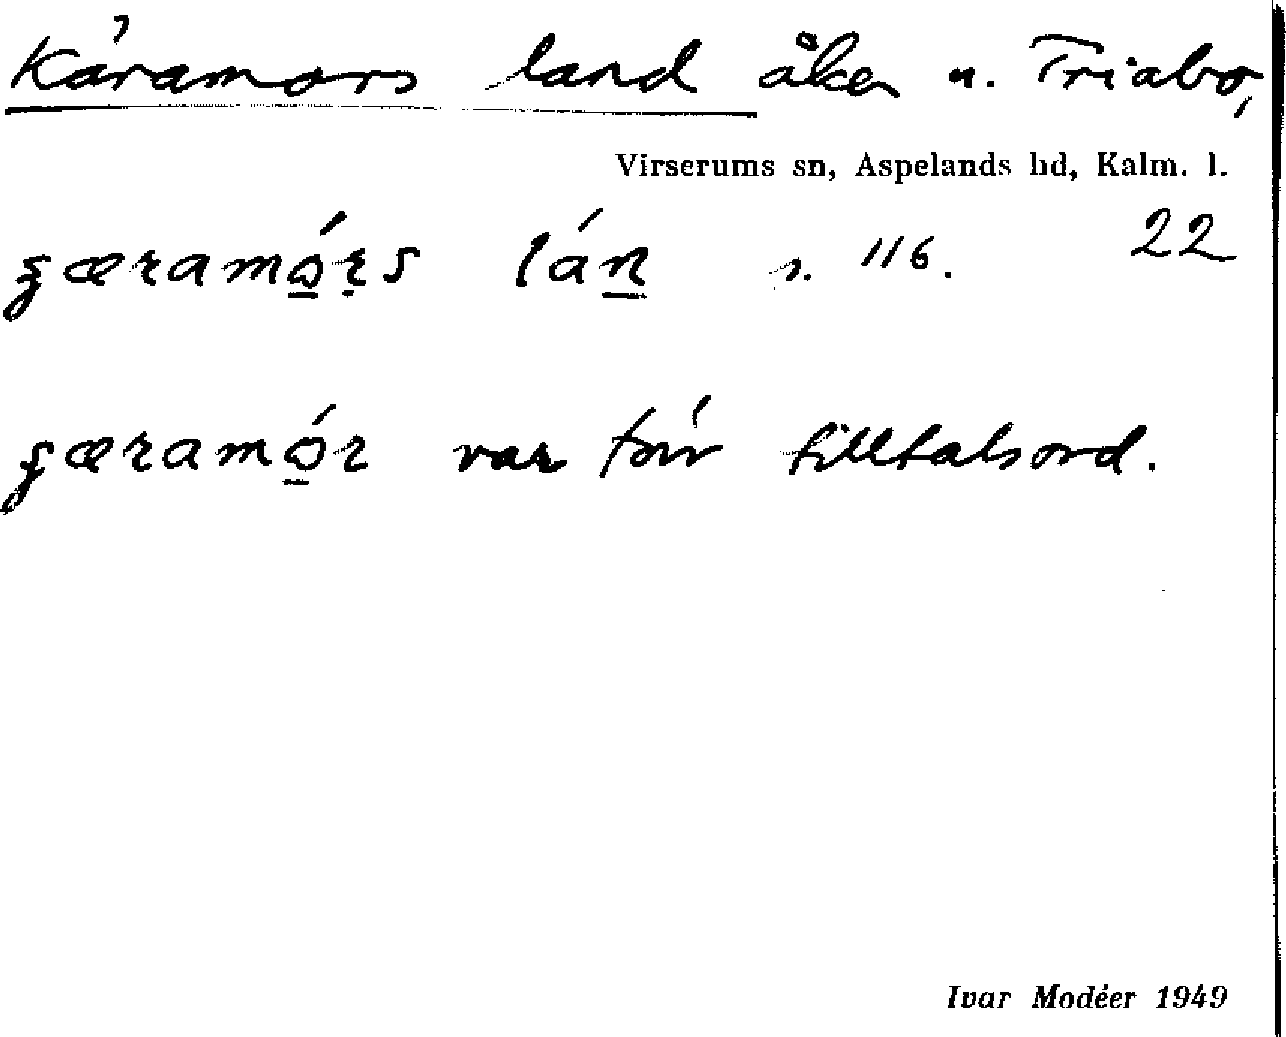 Käramors land åker n. Triabo,
Virserums sn, Aspelands hd, Kalm. l.
ɕæramǿrs lán s. 116. 22
ɕæramǿr var förr tilltalsord.
Ivar Modéer 1949